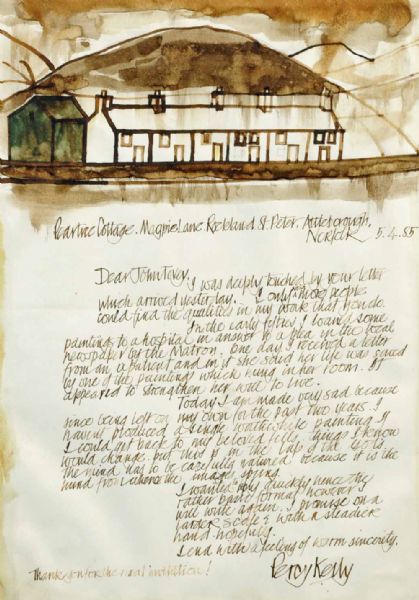 Peartree Cottage. Magpie Lane Rockland St. Peter. Attleborough.
Norfolk 5.4.85
Dear John Tovey,
I was deeply touched by your letter
which arrived yesterday. I only more people
could find the qualities in my work that you do.
In the early fifties I loaned some
paintings to a hospital in answer to a plea in the local
newspaper by the Matron. One day I received a letter
from an expatient and in it she said her life was saved
by one of the paintings which hung in her room. It
appeared to strengthen her will to live.
Today I am made very sad because
since being left on my own for the past two years I
haven't produced a single worthwhile painting. If
I could get back to my beloved hills, things I know
would change. but this is in the lap of the gods.
the mind has to be carefully because it is the
mind from whence the images spring.
I wanted to quickly hence the
rather format however I
will write again I promise on a
larger scale & with a steadier
hand hopefully.
I end with a feeling of warm sincerity.
Percy Kelly
Thank you for the meal invitation!